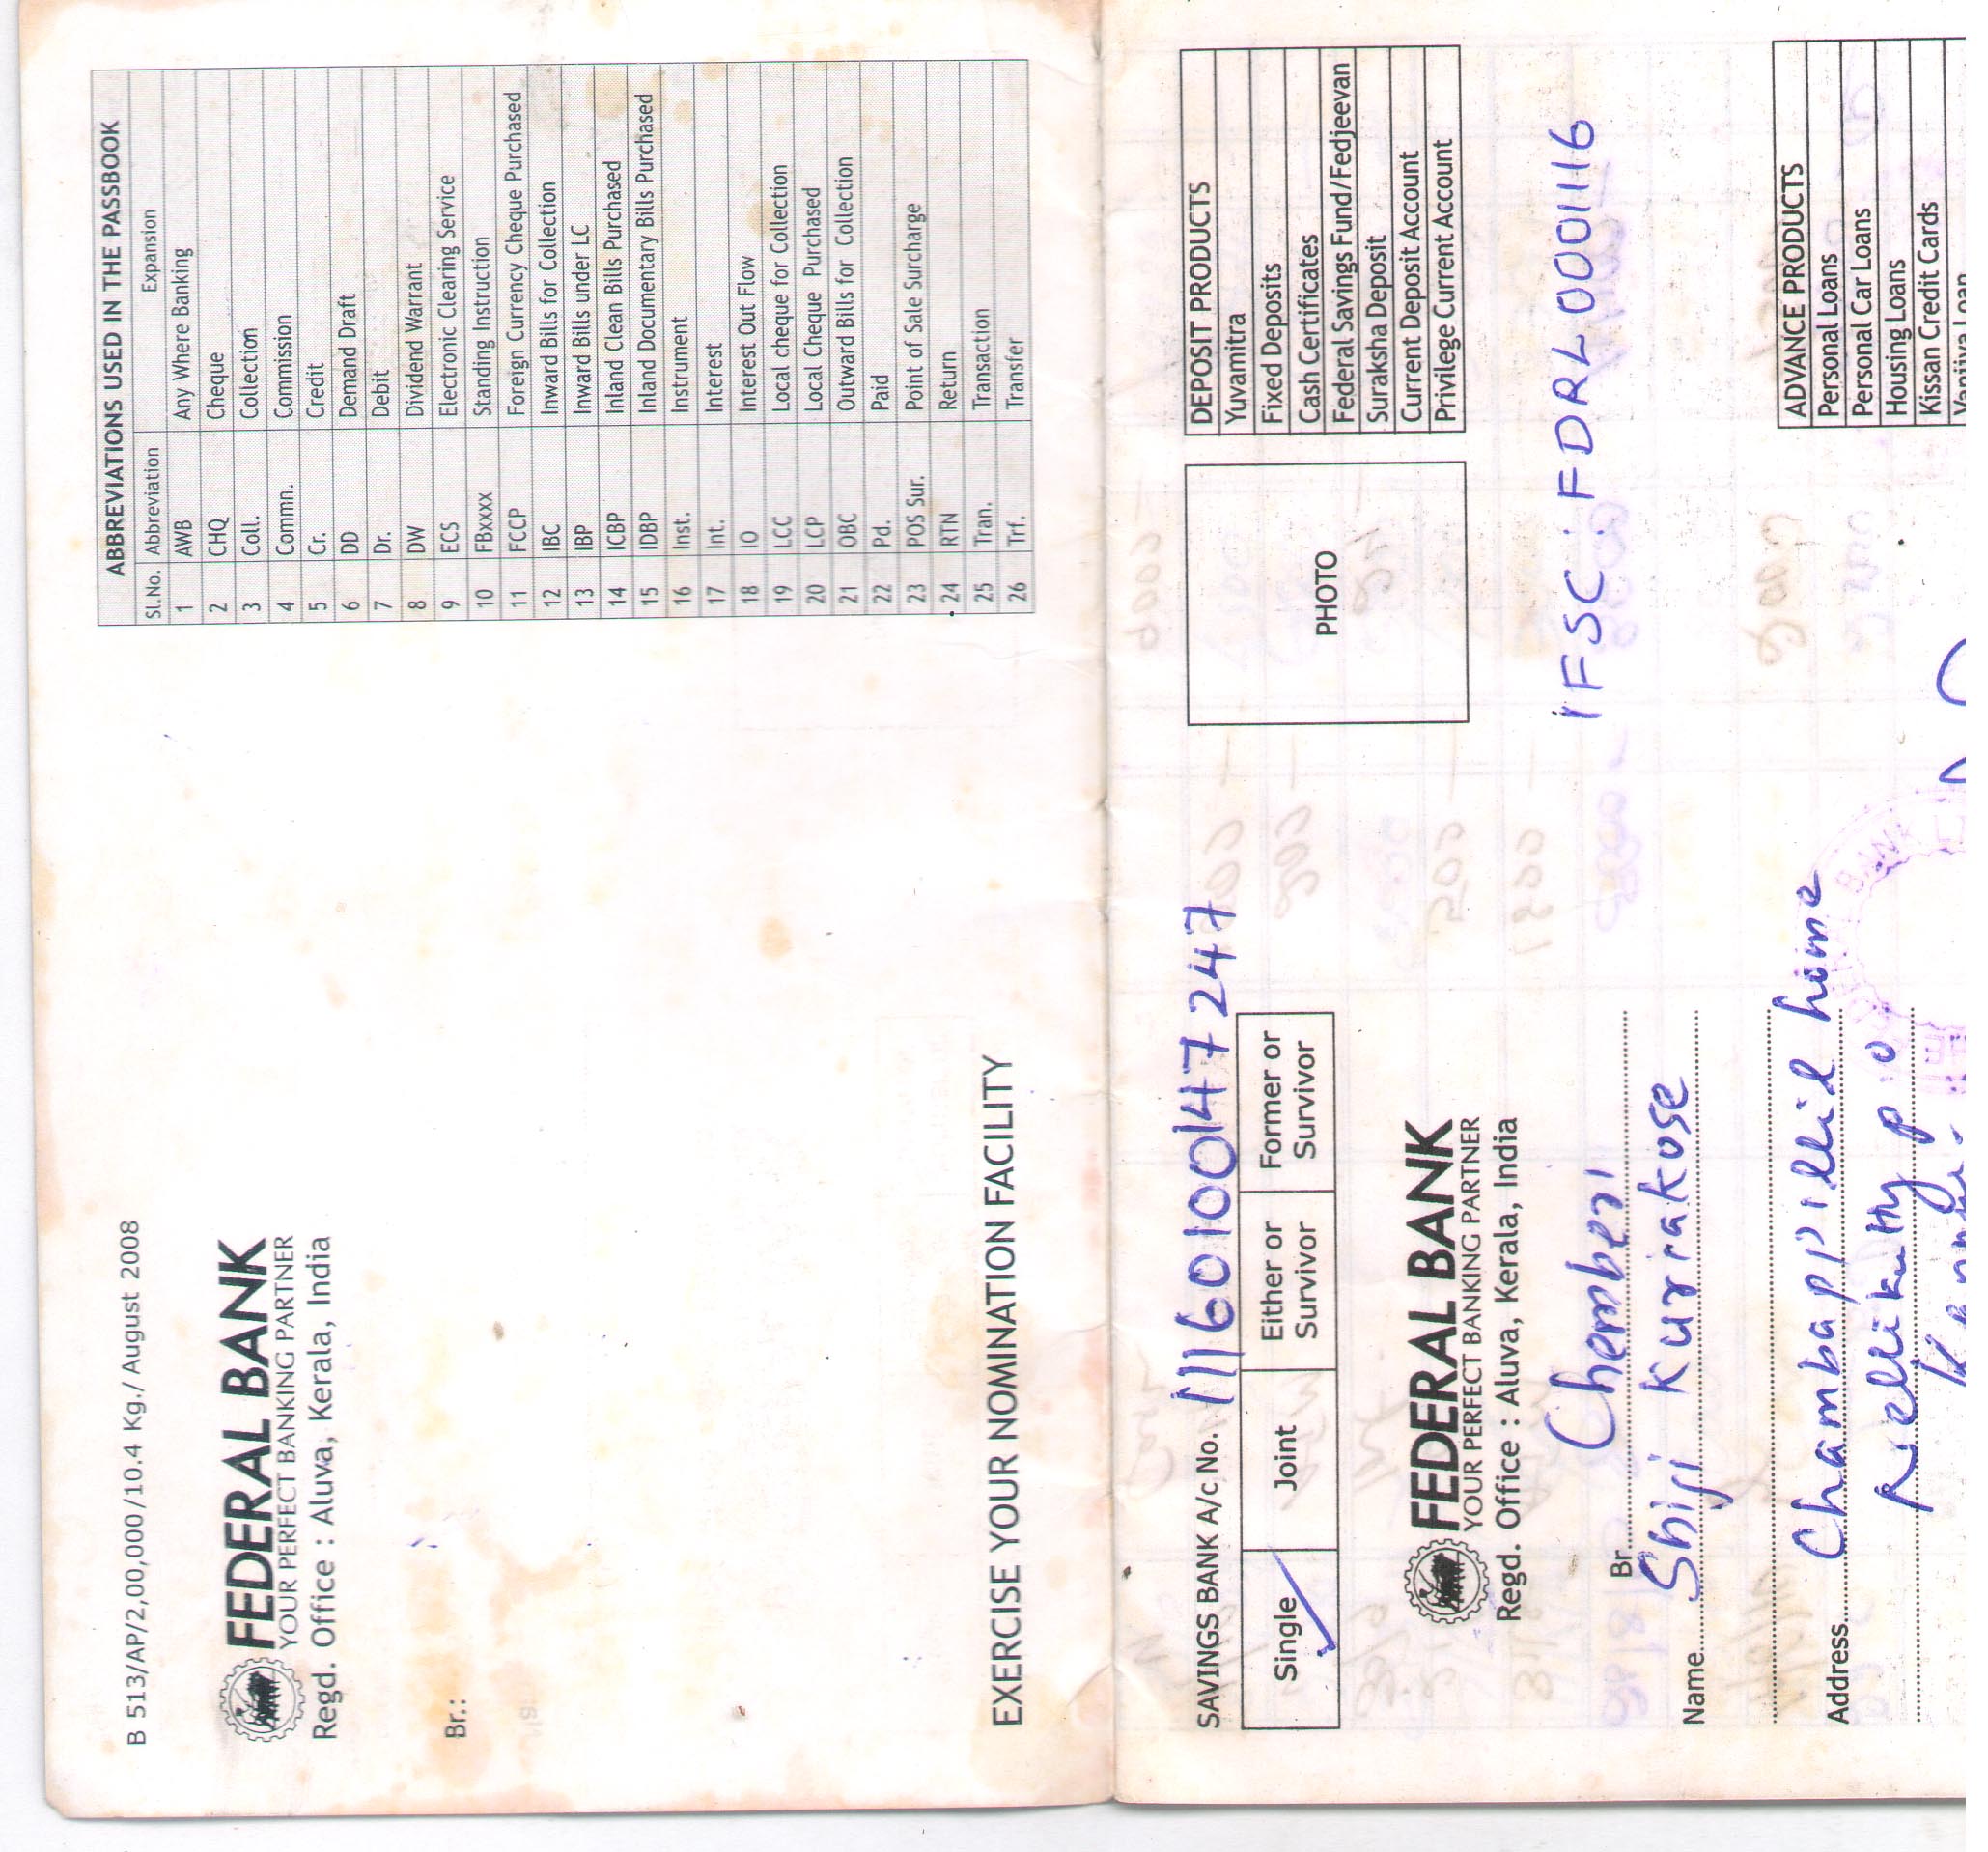 B 513/AP/2,00,000/10.4 Kg./ August 2008
FEDERAL BANK
YOUR PERFECT BANKING PARTNER
Regd. Office : Aluva, Kerala, India
Br.:
EXERCISE YOUR NOMINATION FACILITY
ABBREVIATIONS USED IN THE PASSBOOK
Sl.No. Abbreviation Expansion
1 AWB Any Where Banking
2 CHQ Cheque
3 Coll. Collection
4 Commn. Commission
5 Cr. Credit
6 DD Demand Draft
7 Dr. Debit
8 DW Dividend Warrant
9 ECS Electronic Clearing Service
10 FBxxxx Standing Instruction
11 FCCP Foreign Currency Cheque Purchased
12 IBC Inward Bills for Collection
13 IBP Inward Bills under LC
14 ICBP Inland Clean Bills Purchased
15 IDBP Inland Documentary Bills Purchased
16 Inst. Instrument
17 Int. Interest
18 IO Interest Out Flow
19 LCC Local cheque for Collection
20 LCP Local Cheque Purchased
21 OBC Outward Bills for Collection
22 Pd. Paid
23 POS Sur. Point of Sale Surcharge
24 RTN Return
25 Tran. Transaction
26 Trf. Transfer
SAVINGS BANK A/c No. 11160100147247
Single Joint Either or Survivor Former or Survivor
FEDERAL BANK
YOUR PERFECT BANKING PARTNER
Regd. Office : Aluva, Kerala, India
Br. Chemberi
Name Shiji Kuriakose
Address Chambappillil home
PO
PHOTO
IFSC : FDRL0001116
DEPOSIT PRODUCTS
Yuvamitra
Fixed Deposits
Cash Certificates
Federal Savings Fund/Fedjeevan
Suraksha Deposit
Current Deposit Account
Privilege Current Account
ADVANCE PRODUCTS
Personal Loans
Personal Car Loans
Housing Loans
Kissan Credit Cards